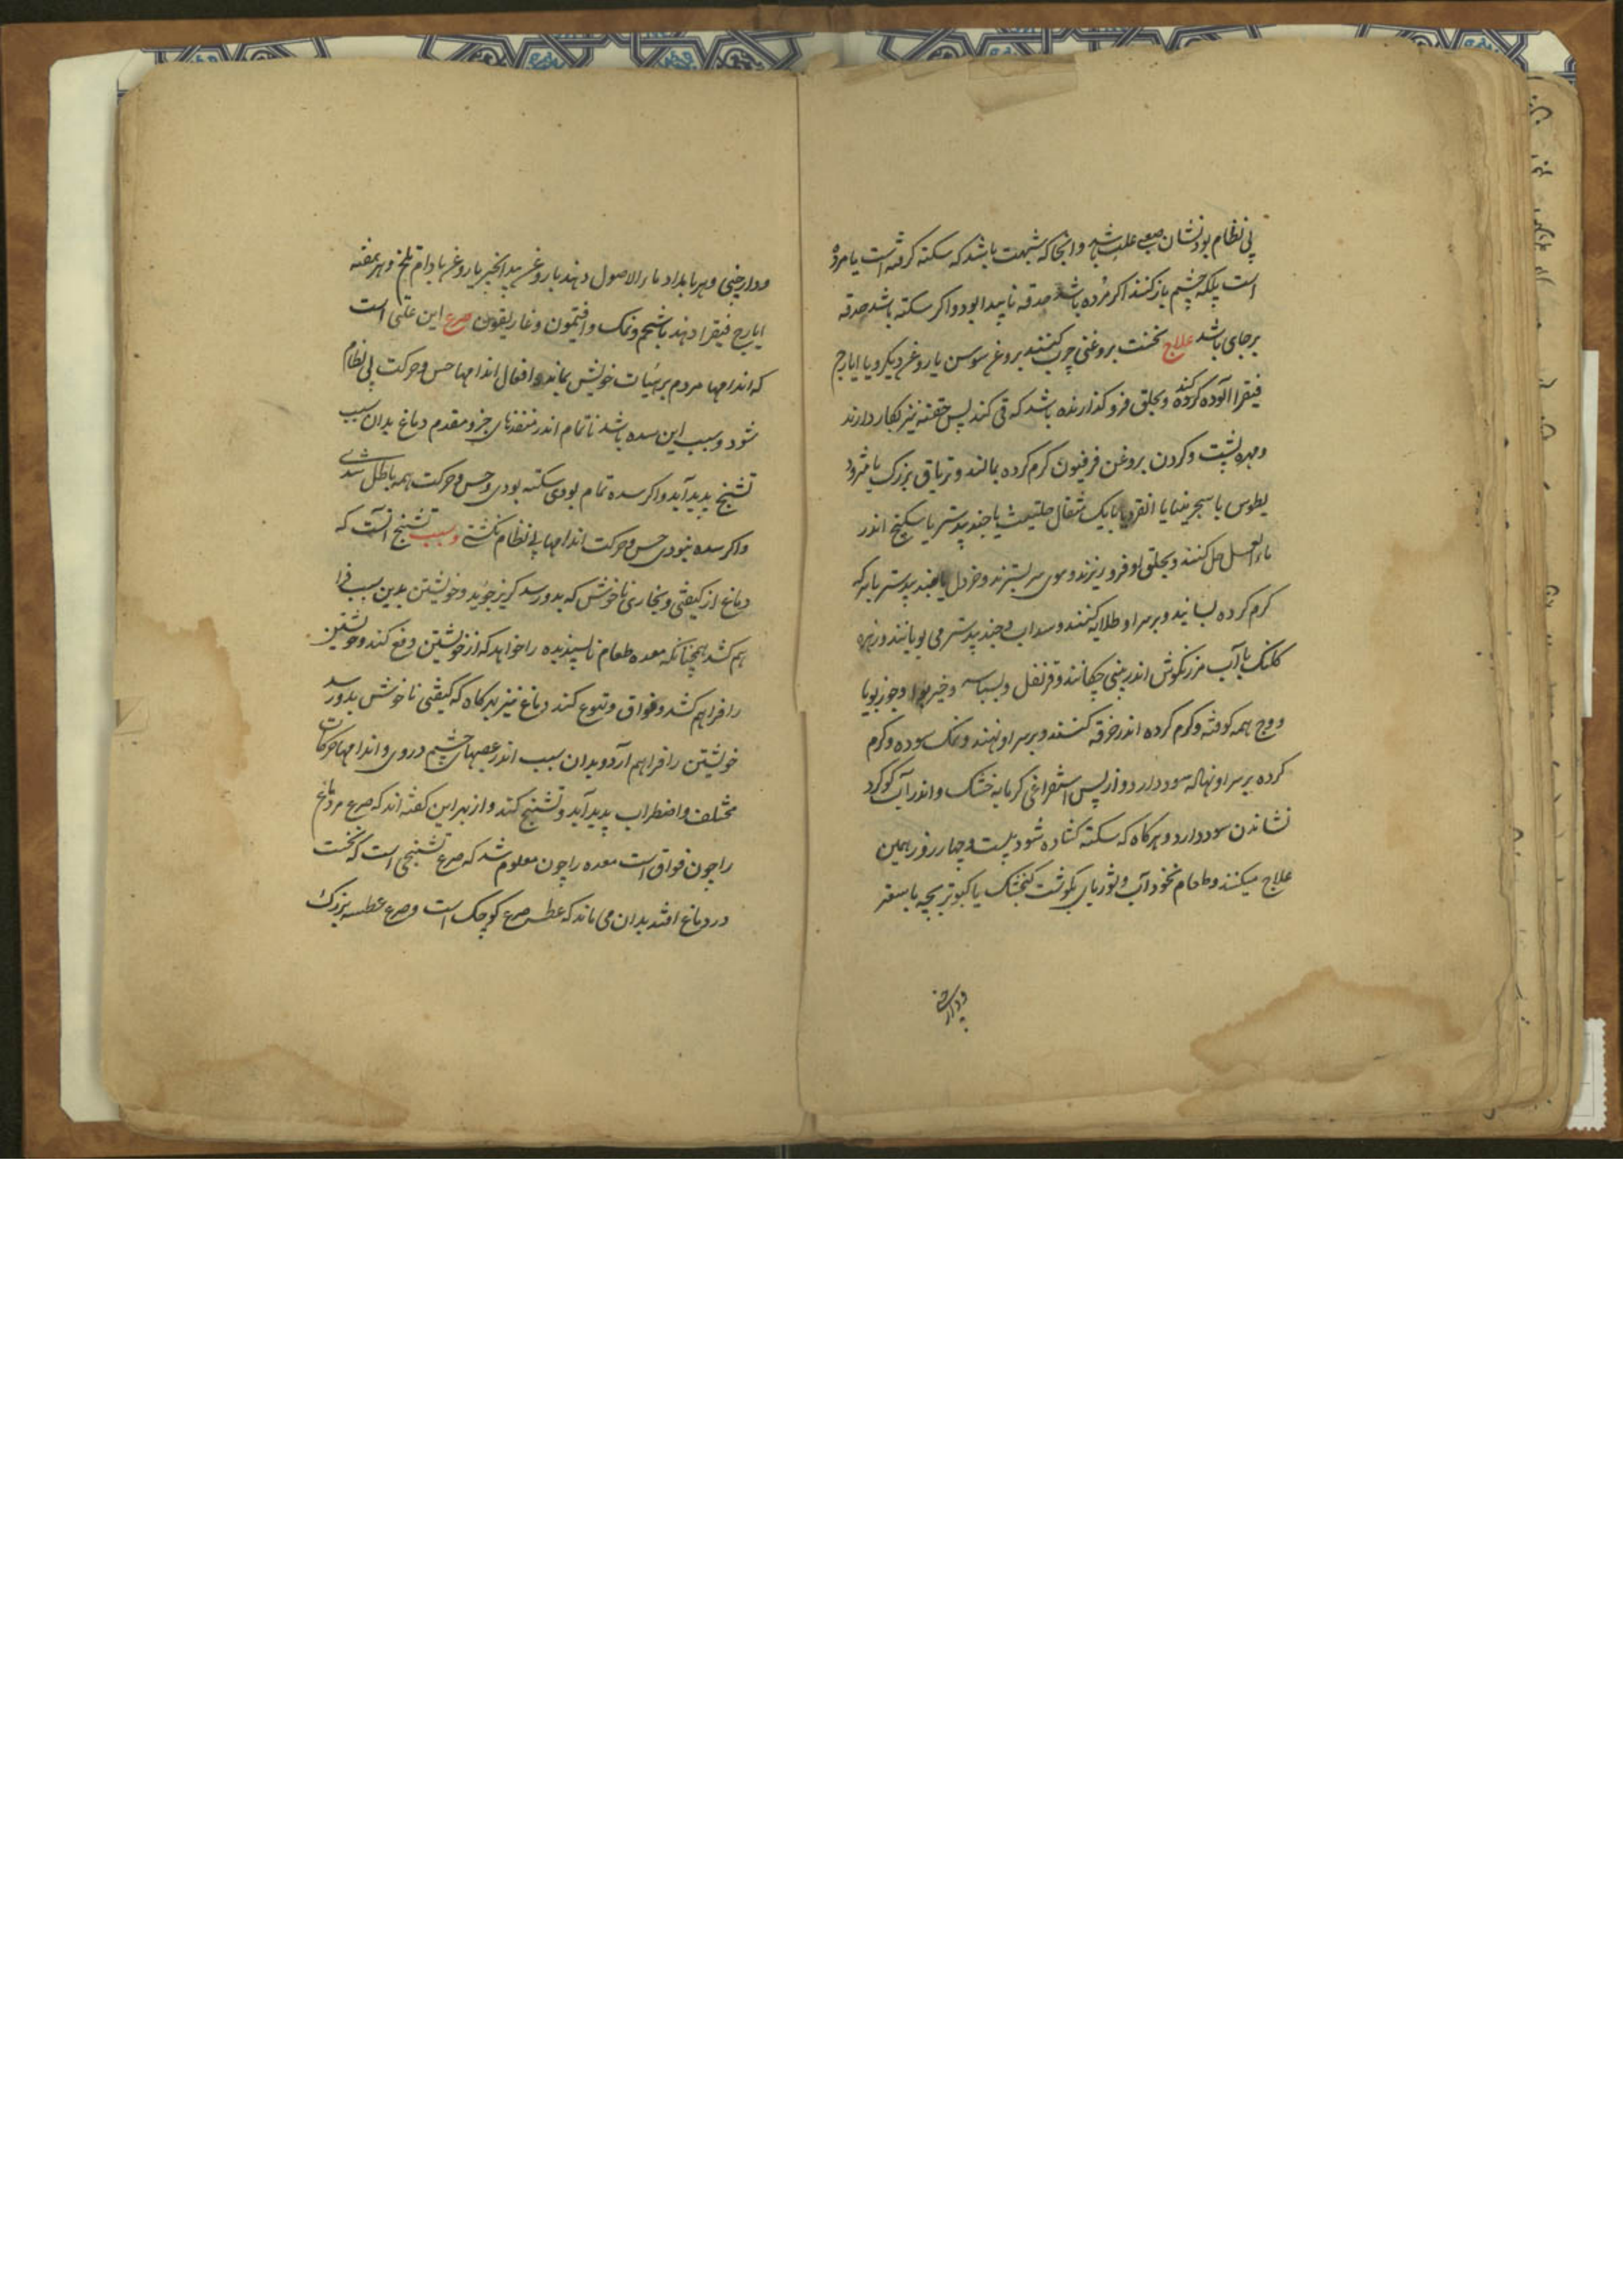 بی نظام بود نشان صعبی علت باشد و انجا که شبهت باشد که سکته کرفته است یا مرده
است پلکه چشم باز کنند اکر مرده باشد حدقه ناپیدا بود و اکر سکته باشد حدقه
برجای باشد علاج نخست پر مرغی چرب کنند بروغن سوسن یا روغن دیکر و با ایارج
فیقرا آلوده کرده کنند و بحلق فرو کذارند باشد که قی کند پس حقنه تیز بکار دارند
و مهره پشت و کردن بروغن فرفیون کرم کرده بمالند و تریاق بزرک یا مثرود
یطوس یا سجزینا یا انقردیا با یک مثقال حلتیت یا جندبیدستر یا سکبینج اندر
ماء العسل حل کنند و بحلق او فرو ریزند و موی سر بسترند و خردل با جندبیدستر با سرکه
کرم کرده بسایند و بر سر او طلا کنند و سداب و جندبیدستر می بویانند و زهره
کلنک با آب مرزنکوش اندر بینی چکانند و قرنفل و بسباسه و خیربوا و جوزبویا
و وج همه کوفته و کرم کرده اندر خرقه کنند و بر سر او نهند و نمک سوده و کرم
کرده بر سر او نهاله سود دارد و از پس استفراغی کرمابه خشک و اندر آب کوکرد
نشاندن سود دارد و هرکاه که سکته کشاده شود بیست و چهار روز همین
علاج میکنند و طعام نخودآب و شوربای بکوشت کنجشک یا کبوتر بچه با سعتر
ودارچینی
ودارچینی و هر بامداد ماء الاصول دهند با روغن بیدانجیر یا روغن بادام تلخ و هر هفته
ایارج فیقرا دهند با شحم و نمک و افتیمون و غاریقون صرع این علتی است
که اندامها مردم بر هیات خویش بماند و افعال اندامها حس و حرکت بی نظام
شود و سبب این سده باشد ناتمام اندر منفذهای جزو مقدم دماغ بدان سبب
تشنج پدید آید و اکر سده تمام بودی سکته بودی و حس و حرکت همه باطل شدی
و اکر سده نبودی حس و حرکت اندامها بی نظام نکشتی و سبب تشنج آنست که
دماغ از کیفیتی و بخاری ناخوش که بدو رسد کریز جوید و خویشتن بدین سبب فرا
هم کشد همچنانکه معده طعام ناپسندیده را خواهد که از خویشتن دفع کند و خویشتن
را فراهم کشد و فواق و تهوع کند دماغ نیز هرکاه که کیفیتی ناخوش بدو رسد
خویشتن را فراهم آرد و بدان سبب اندر عصبهای چشم و روی و اندامها حرکات
مختلف و اضطراب پدید آید و تشنج کند و از بهر این کفته اند که صرع مر دماغ
را چون فواق است معده را چون معلوم شد که صرع تشنجی است که نخست
در دماغ افتد بدان می ماند که عطسه صرع کوچک است و صرع عطسه بزرک